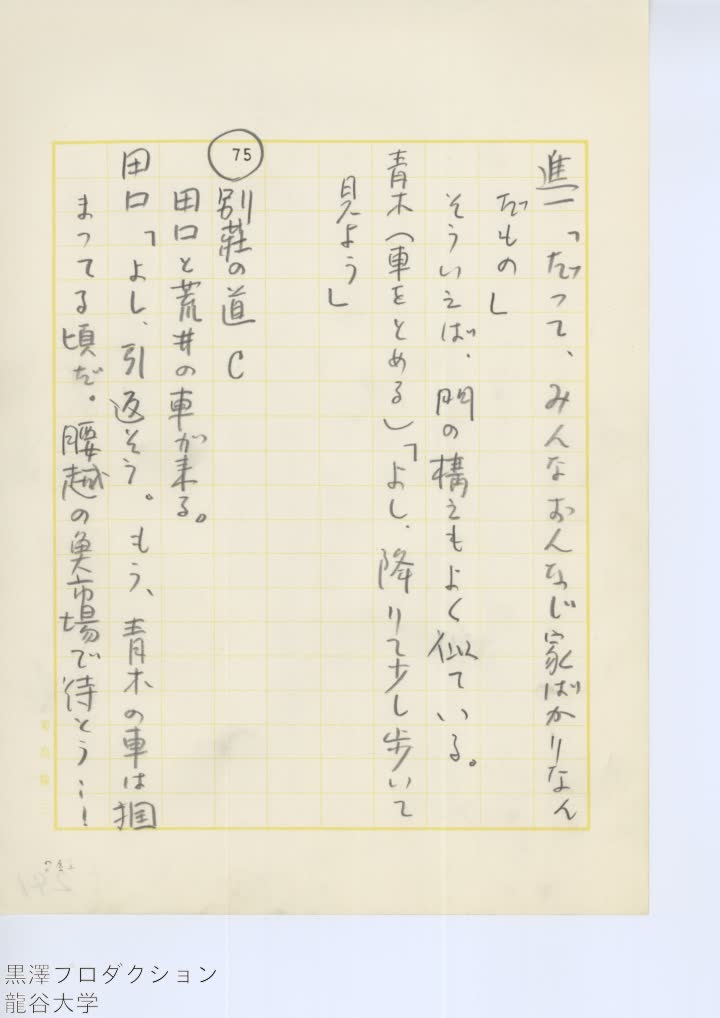 進一「だって、みんなおんなじ家ばかりなん
だもの」
そういえば、門の構えもよく似ている。
青木（車をとめる）「よし、降りて少し歩いて
見よう」
75
別荘の道 C
田口と荒井の車が来る。
田口「よし、引返そう。もう、青木の車は掴
まってる頃だ。腰越の魚市場で待とう…！
黒澤プロダクション
龍谷大学